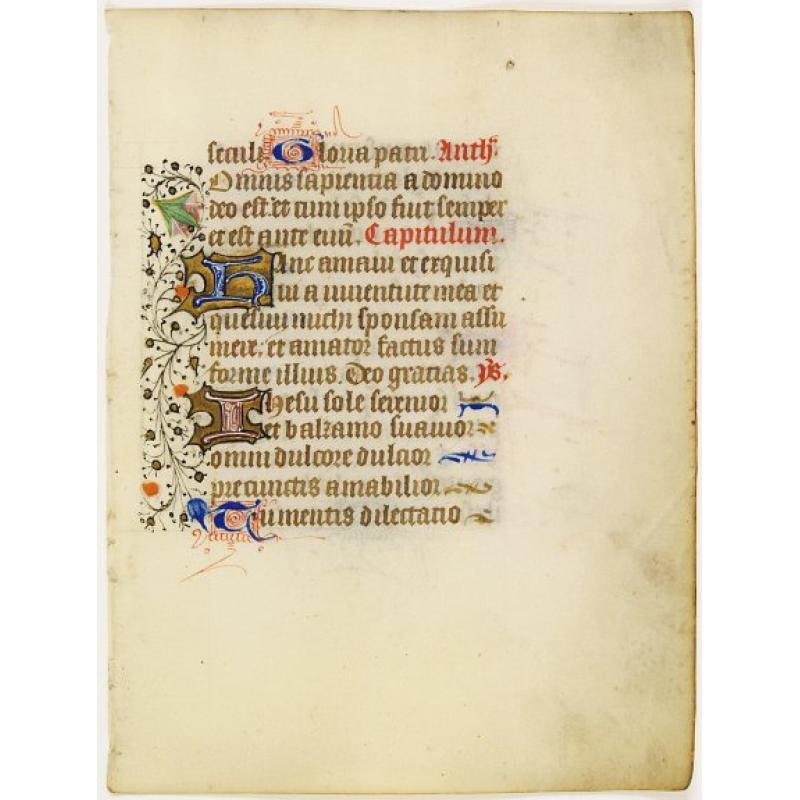 seculi Gloria patri. Anth.
Omnis sapientia a domino
deo est. et cum ipso fuit semper
et est ante euū. Capitulum.
Hanc amaui et exquisi
ui a iuuentute mea et
quesiui michi sponsam assu
mere, et amator factus sum
forme illius. Deo gracias. ys.
Ihesu sole serenior
et balzamo suauior
omni dulcore dulcior
pre cunctis amabilior
Tu mentis dilectacio